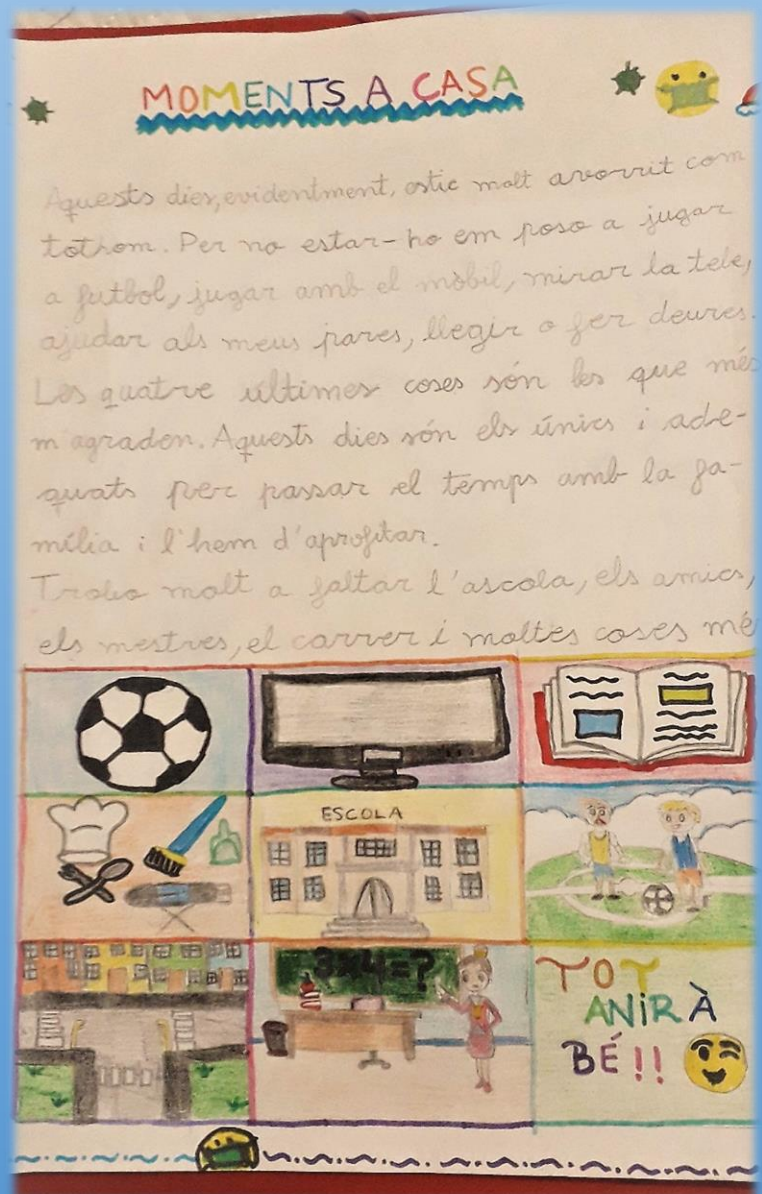 MOMENTS A CASA
Aquests dies, evidentment, estic molt avorrit com
tothom. Per no estar-ho em poso a jugar
a futbol, jugar amb el mòbil, mirar la tele,
ajudar als meus pares, llegir o fer deures.
Les quatre últimes coses són les que més
m'agraden. Aquests dies són els únics i ade-
quats per passar el temps amb la fa-
mília i l'hem d'aprofitar.
Trobo molt a faltar l'ascola, els amics,
els mestres, el carrer i moltes coses mé
ESCOLA
3x4=?
TOT
ANIRÀ
BÉ!!